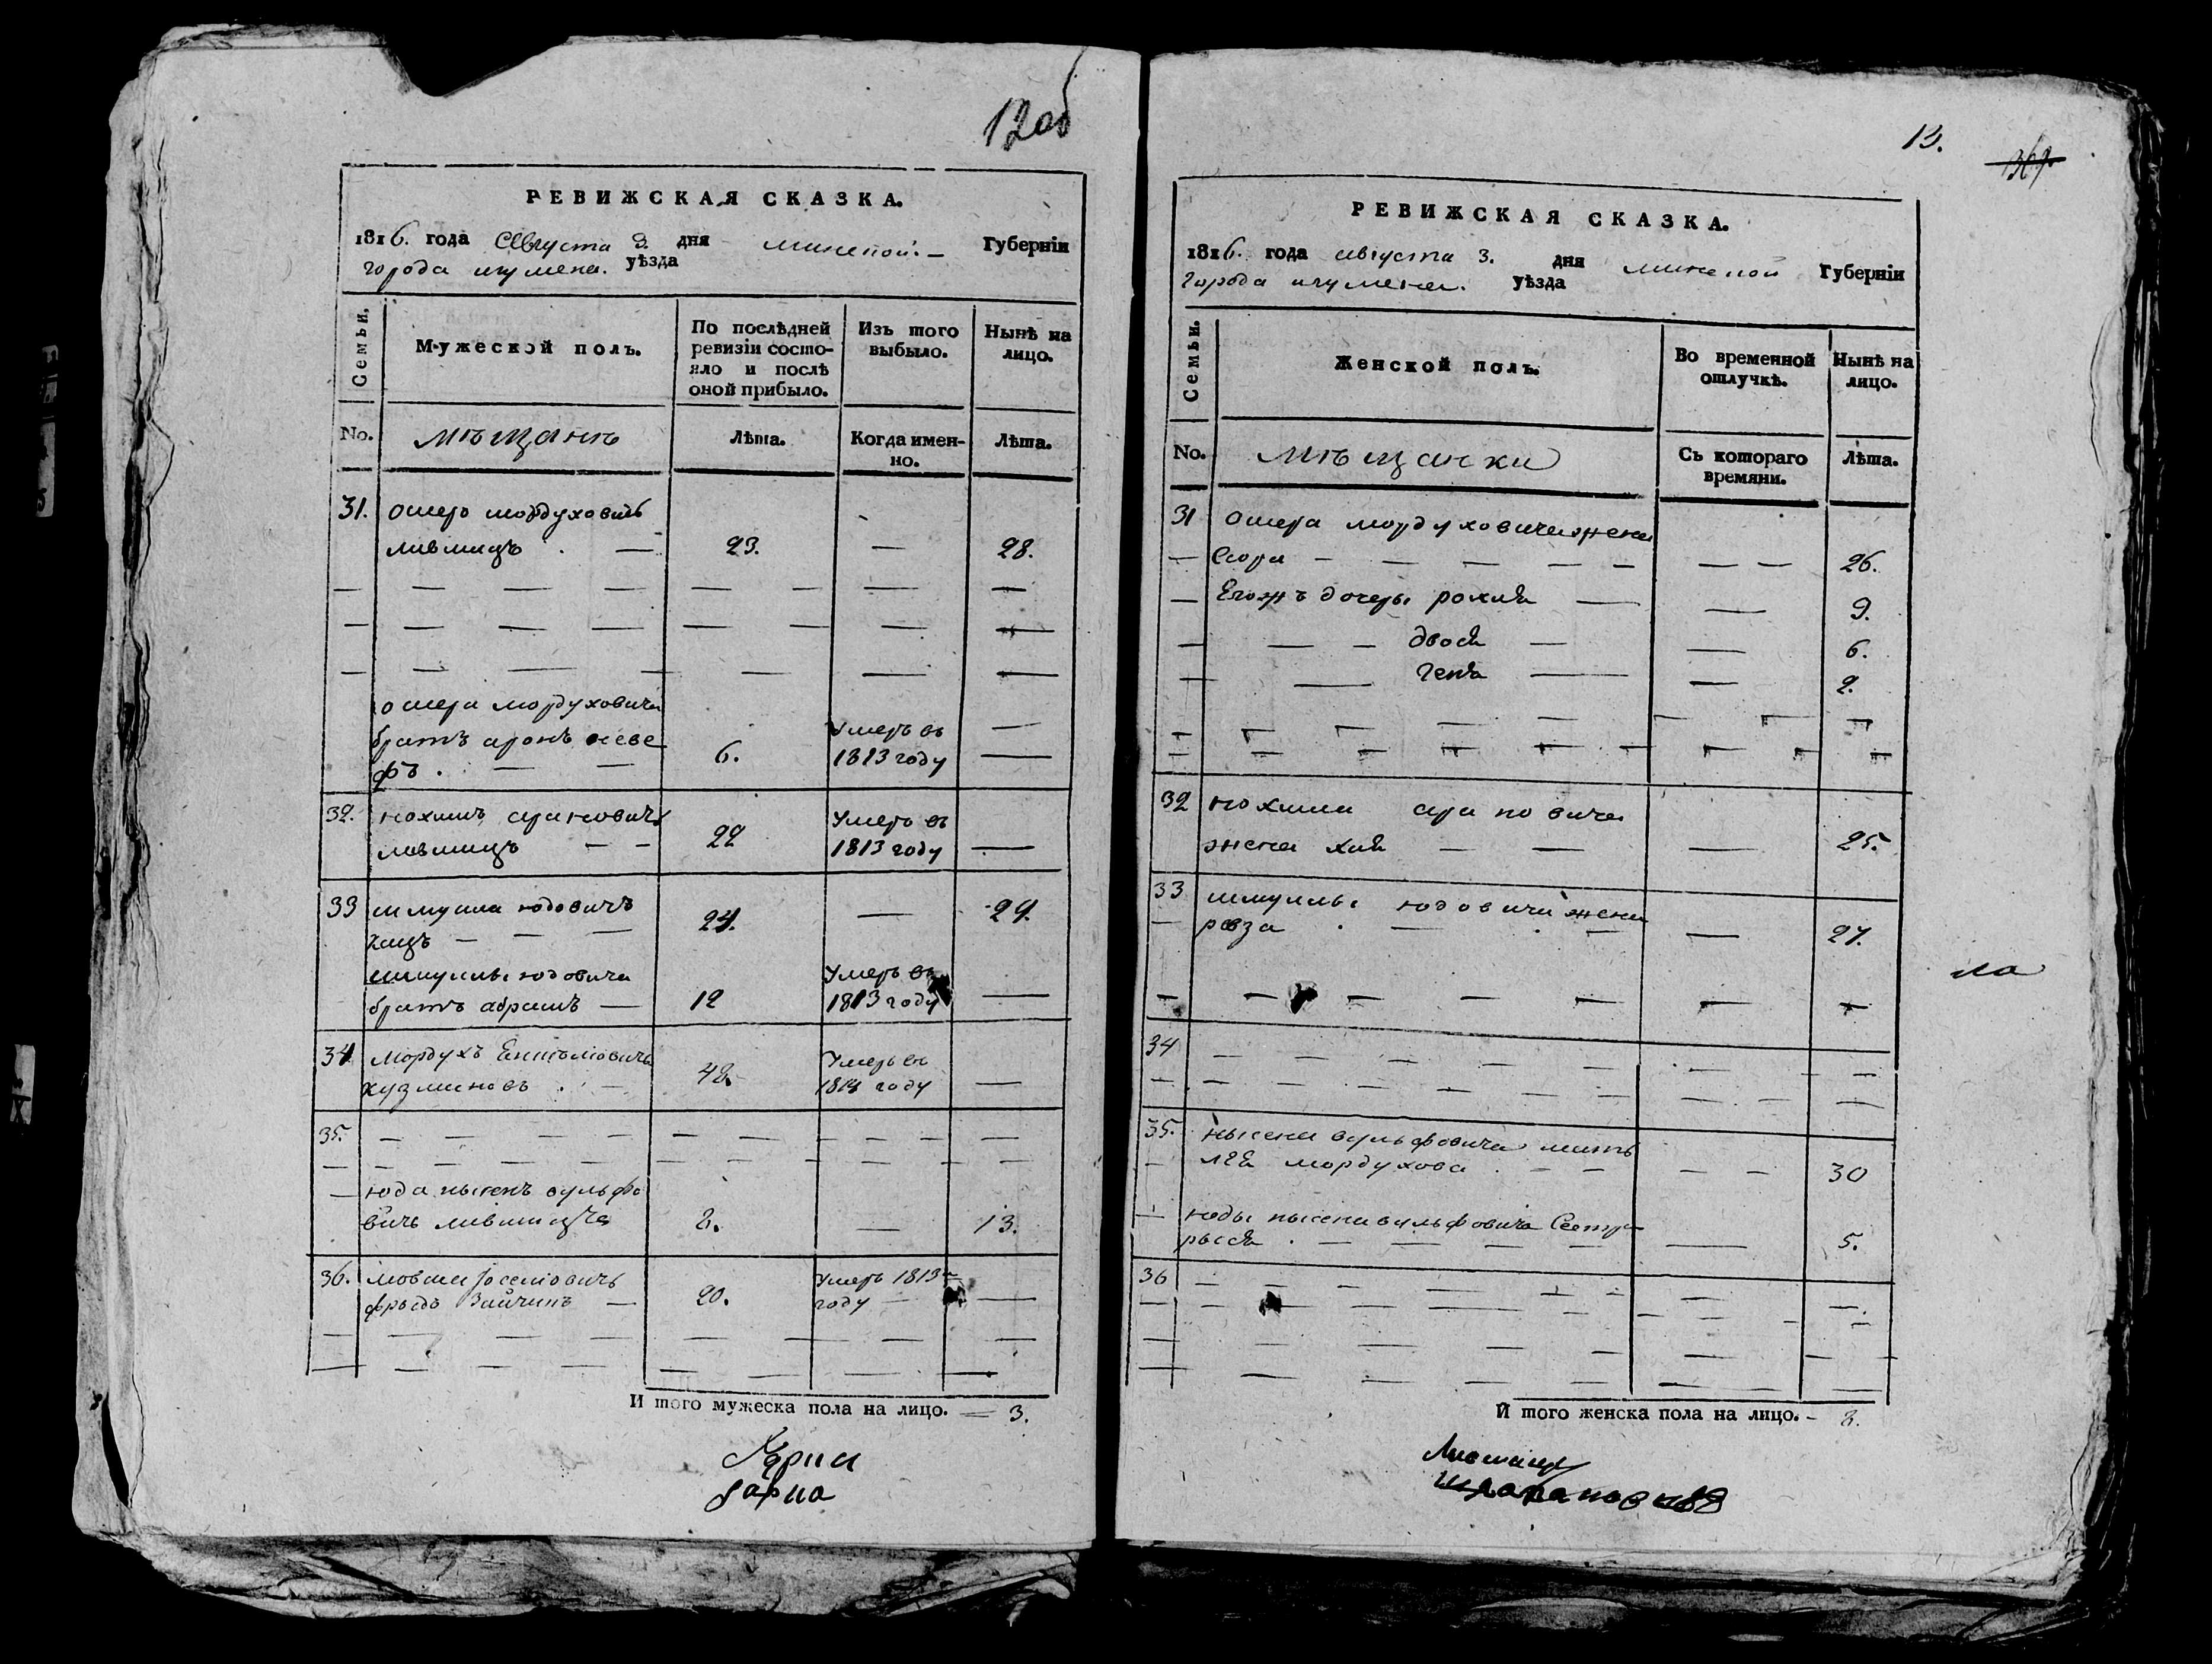 12об
РЕВИЖСКАЯ СКАЗКА.
1816. года Августа 3. дня Минской. Губерніи
города игумена. уѣзда
Семьи. Мужеской полъ. По послѣдней ревизіи состояло и послѣ оной прибыло. Изъ того выбыло. Нынѣ на лицо.
No. мѣщанѣ Лѣта. Когда именно. Лѣта.
31. ошеръ мордуховичъ
лившицъ . — 23. — 28.
ошера мордуховича
братъ аронъ
фъ . — — 6. Умеръ въ 1813 году —
32. нохимъ ароновичъ
лившицъ — — 22 Умеръ въ 1813 году —
33 шмуила юдовичъ
кацъ — — — 24. — 29.
шмуилы юдовича
братъ абрамъ — 12 Умеръ въ 1813 году —
34 мордухъ
кузминовъ . — 48. Умеръ въ 1814 году —
35. — — — — — — — — — —
— юда нысенъ вульфо
вичъ лившицъ 8. — 13.
36. мовша
Зайчикъ — 20. Умеръ 1813 году — —
И того мужеска пола на лицо. — 3.
13.
369
РЕВИЖСКАЯ СКАЗКА.
1816. года августа 3. дня минской Губерніи
города игумена. уѣзда
Семьи. Женской полъ. Во временной отлучкѣ. Нынѣ на лицо.
No. мѣщанки Съ котораго времяни. Лѣта.
31 ошера мордуховича жена
— Сора — — — — — — — 26.
— Егожъ дочеры рохля — — 9.
— — — двося — — 6.
— — геня — — 2.
32 нохима ароновича
жена хая — — — 25.
33 шмуилы юдовича жена
— рѣза . — . — — 27.
34 — — — — — — — —
35. нысена вульфовича мать
— лея мордухова . — — — — 30
— юды нысена вульфовича Сестра
рыся . — — — — — 5.
36 — — — — — — —
И того женска пола на лицо. — 8.
ла